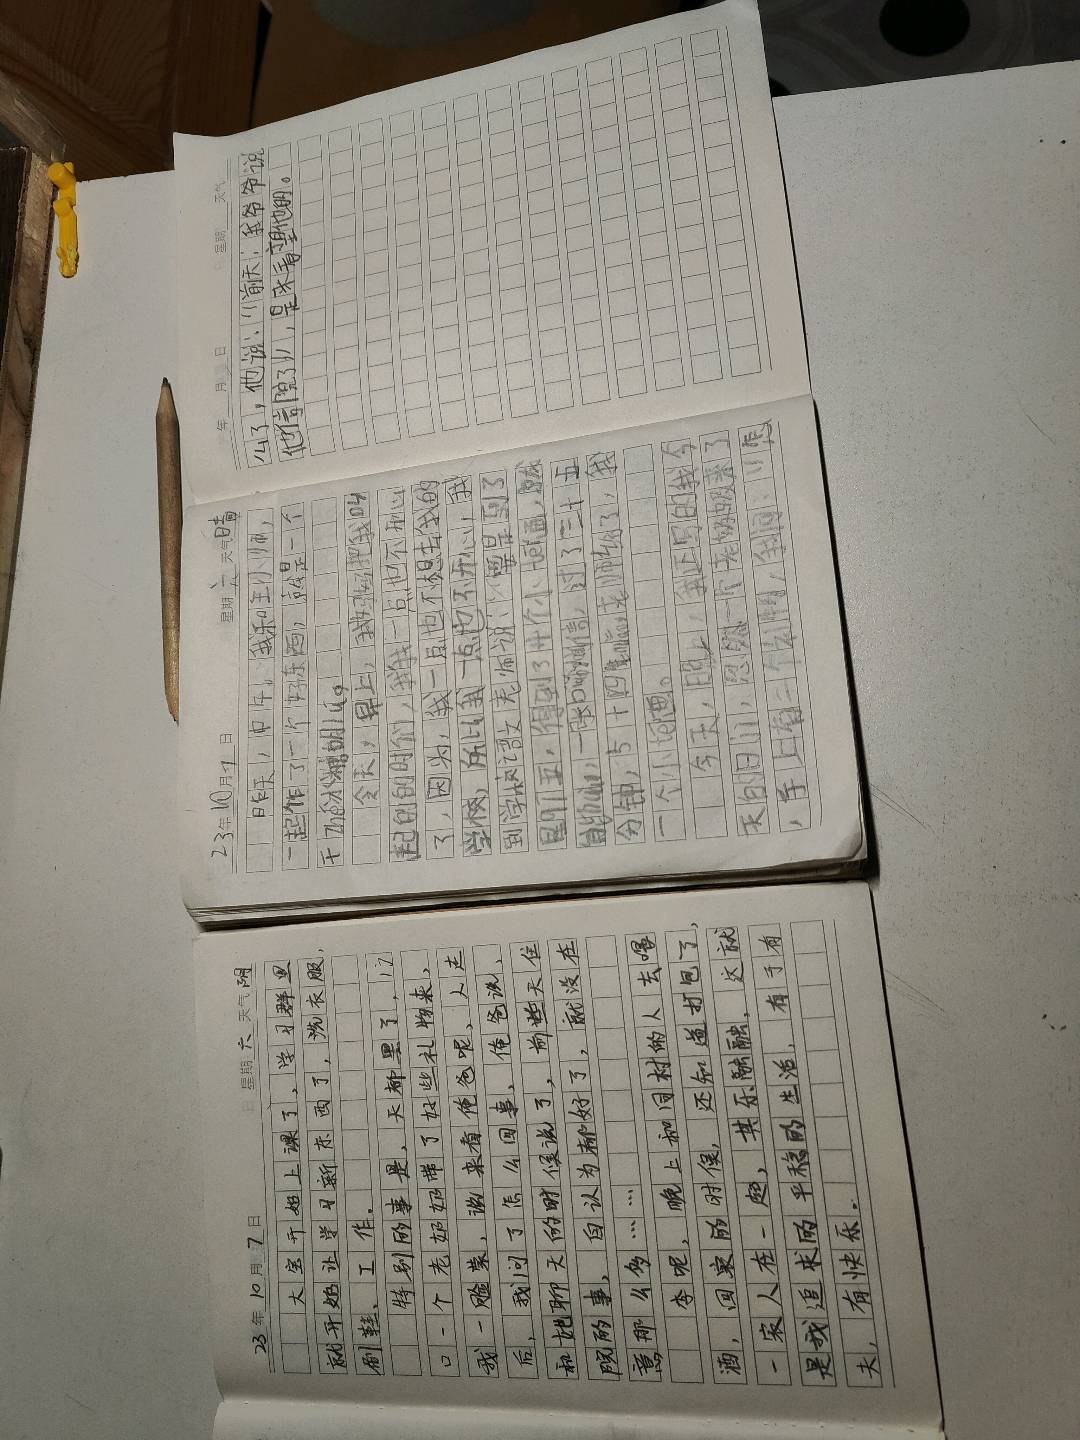 23年10月7日 星期六 天气阴
大宝开始上课了、学习群里
就开始让学习新东西了，洗衣服，
刷鞋、工作。
特别的事是，天都黑了，门
口一个老奶奶带了好些礼物来，
我一脸蒙，说来看俺爸呢，人走
后，我问了怎么回事、俺爸说、
和她聊天的时候说了，前些天住
院的事，自认为都好了，就没在
意那么多……
李呢，晚上和同村的人去喝
酒，回家的时候，还知道打包了，
一家人在一起，其乐融融，这就
是我追求的平稳的生活，有于有
夫，有快乐。
23年10月7日 星期六 天气晴
昨天，中午，我和王小帅，
一起作了一个好东西，就是一个
干
今天，早上，我妈妈把我叫
起的的时们，我我一点也不开心
了，因为，我一点也不想去我的
学校，所以我一点也不开心，我
到学校了 老师说：要是到了
星期五，得到了廿个小 ，就
一张 ，过了三十五
分钟，
一个小 。
今天，晚上，我正写的我今
天的日门，忽然一个老奶奶来了
，手上有三个礼物，我问：“怎
年 月 日 星期 天气
么了，他说：“前天，我爷爷说
他 了”，是来看望他的。